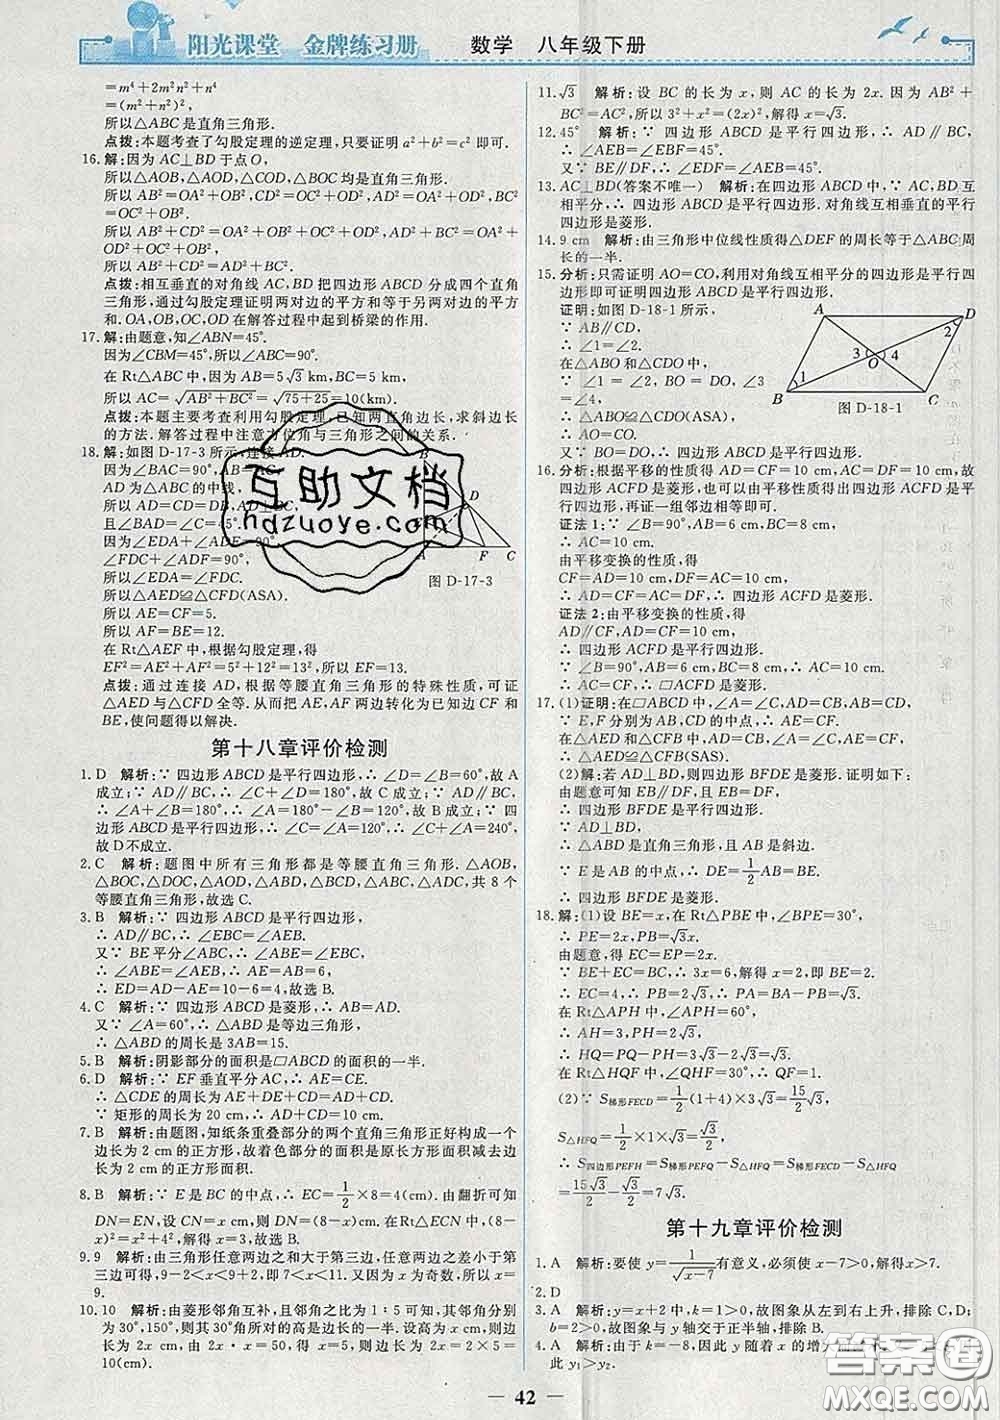 阳光课堂 金牌练习册 数学 八年级下册
=m⁴+2m²n²+n⁴
=(m²+n²)²,
所以△ABC是直角三角形.
点拨:本题考查了勾股定理的逆定理,只要证明a²+b²=c²即可.
16.解:因为AC⊥BD于点O,
所以△AOB,△AOD,△COD,△BOC均是直角三角形.
所以AB²=OA²+OB²,CD²=OC²+OD²,AD²=OA²+OD²,
BC²=OC²+OB².
所以AB²+CD²=OA²+OB²+OC²+OD²,AD²+BC²=OA²+OB²+OC²+OD².
所以AB²+CD²=AD²+BC².
点拨:相互垂直的对角线AC,BD把四边形ABCD分成四个直角
三角形,通过勾股定理证明两对边的平方和等于另两对边的平方
和.OA,OB,OC,OD在解答过程中起到桥梁的作用.
17.解:由题意,知∠ABN=45°.
因为∠CBM=45°,所以∠ABC=90°.
在Rt△ABC中,因为AB=5√3 km,BC=5 km,
所以AC=√(AB²+BC²)=√(75+25)=10(km).
点拨:本题主要考查利用勾股定理,已知两直角边长,求斜边长
的方法.解答过程中注意方位角与三角形之间的关系.
18.解:如图D-17-3所示,连接AD.
因为∠BAC=90°,AB=
AD为△ABC的中线,
所以AD=DC=DB,AD⊥
且∠BAD=∠C=
因为∠EDA+∠ADF=90°,
∠FDC+∠ADF=90°,
所以∠EDA=∠FDC.
所以△AED≌△CFD(ASA).
所以AE=CF=5.
所以AF=BE=12.
在Rt△AEF中,根据勾股定理,得
EF²=AE²+AF²=5²+12²=13²,所以EF=13.
点拨:通过连接AD,根据等腰直角三角形的特殊性质,可证
△AED与△CFD全等.从而把AE,AF两边转化为已知边CF和
BE,使问题得以解决.
D
A F C
图D-17-3
第十八章评价检测
1.D 解析:∵四边形ABCD是平行四边形,∴∠D=∠B=60°,故A
成立;∵AD∥BC,∴∠C+∠D=180°,故C成立;∵AD∥BC,
∴∠A+∠B=180°,∴∠A=180°-∠B=120°,故B成立;∵四
边形ABCD是平行四边形,∴∠C=∠A=120°,∴∠C+∠A=240°,
故D不成立.
2.C 解析:题图中所有三角形都是等腰直角三角形.△AOB,
△BOC,△DOC,△AOD,△ABD,△BCD,△ABC,△ADC,共8个
等腰直角三角形,故选C.
3.B 解析:∵四边形ABCD是平行四边形,
∴AD∥BC,∴∠AEB=∠EBC.
又∵BE平分∠ABC,∴∠ABE=∠EBC,
∴∠ABE=∠AEB,∴AB=AE=6,
∴ED=AD-AE=10-6=4,故选B.
4.C 解析:∵四边形ABCD是菱形,∴AB=AD.
又∵∠A=60°,∴△ABD是等边三角形,
∴△ABD的周长是3AB=15.
5.B 解析:阴影部分的面积是▱ABCD的面积的一半.
6.D 解析:∵EF垂直平分AC,∴AE=CE.
∴△CDE的周长为AE+DE+CD=AD+CD.
∵矩形的周长为20 cm,∴AD+CD=10 cm.
7.B 解析:由题图,知纸条重叠部分的两个直角三角形正好构成一个
边长为2 cm的正方形,故着色部分的面积是原长方形面积减去边
长为2 cm的正方形面积.
8.B 解析:∵E是BC的中点,∴EC=1/2×8=4(cm).由翻折可知
DN=EN,设CN=x cm,则DN=(8-x)cm.在Rt△ECN中,(8-
x)²=x²+4²,解得x=3.
9.9 解析:由三角形任意两边之和大于第三边,任意两边之差小于第
三边可得,9-2<x<9+2,即7<x<11.又因为x为奇数,所以x=
9.
10.10 解析:由菱形邻角互补,且邻角之比为1:5可知,其邻角分别
为30°,150°,则其30°角所对的高是边长的一半.设高为x cm,则
边长为2x cm.由2x·x=50,得x=5,故边长=2x=2×5=
10(cm).
11.√3 解析:设BC的长为x,则AC的长为2x.因为AB²+
BC²=AC²,所以3²+x²=(2x)²,解得x=√3.
12.45° 解析:∵四边形ABCD是平行四边形,∴AD∥BC,
∴∠AEB=∠EBF=45°.
又∵BE∥DF,∴∠EDF=∠AEB=45°.
13.AC⊥BD(答案不唯一) 解析:在四边形ABCD中,∵AC,BD互
相平分,∴四边形ABCD是平行四边形.对角线互相垂直的平行
四边形是菱形.
14.9 cm 解析:由三角形中位线性质得△DEF的周长等于△ABC周
长的一半.
15.分析:只需证明AO=CO,利用对角线互相平分的四边形是平行四
边形即可证明四边形ABCD是平行四边形.
证明:如图D-18-1所示,
∵AB∥CD,
∴∠1=∠2.
在△ABO和△CDO中,
∵∠1=∠2,BO=DO,∠3
=∠4,
∴△ABO≌△CDO(ASA).
∴AO=CO.
又∵BO=DO,∴四边形ABCD是平行四边形.
A D B C O 1 2 3 4
图D-18-1
16.分析:根据平移的性质得AD=CF=10 cm,AC=DF=10 cm,故
四边形ACFD是菱形,也可以由平移性质得出四边形ACFD是平
行四边形,再证一组邻边相等即可.
证法1:∵∠B=90°,AB=6 cm,BC=8 cm,
∴AC=10 cm.
由平移变换的性质,得
CF=AD=10 cm,DF=AC=10 cm,
∴AD=CF=AC=DF=10 cm,∴四边形ACFD是菱形.
证法2:由平移变换的性质,得
AD∥CF,AD=CF=10 cm,
∴四边形ACFD是平行四边形.
∵∠B=90°,AB=6 cm,BC=8 cm,∴AC=10 cm,
∴AC=CF,∴▱ACFD是菱形.
17.(1)证明:在▱ABCD中,∠A=∠C,AD=CB,AB=CD.
∵E,F分别为AB,CD的中点,∴AE=CF.
在△AED和△CFB中,∵AE=CF,∠A=∠C,AD=CB,
∴△AED≌△CFB(SAS).
(2)解:若AD⊥BD,则四边形BFDE是菱形.证明如下:
由题意可知EB=DF,ED=BF,
∴四边形BFDE是平行四边形.
∵AD⊥BD,
∴△ABD是直角三角形,且AB是斜边.
∵E是AB的中点,∴DE=1/2AB=BE,
∴四边形BFDE是菱形.
18.解:(1)设BE=x,在Rt△PBE中,∠BPE=30°,
∴PE=2x,PB=√3x.
由题意,得EC=EP=2x.
∵BE+EC=BC,∴3x=6,解得x=2,即BE=2.
∴EC=4,∴PB=2√3,∴PA=√3.
在Rt△APH中,∠APH=60°,
∴AH=3,PH=2√3,
∴HQ=PQ-PH=3√3-2√3=√3.
在Rt△HQF中,∠QHF=30°,∴QF=1.
(2)∵S梯形FECD=1/2(1+4)×3√3=15/2√3,
S△HFQ=1/2×1×√3=√3/2,
∴S四边形PEFH=S梯形PEFQ-S△HFQ=S梯形FECD-S△HFQ
=15√3/2-√3/2=7√3.
第十九章评价检测
1.A 解析:要使y=1/√(x-7)有意义,必须使x-7>0,解得x>7.
2.D
3.A 解析:y=x+2中,k=1>0,故图象从左到右上升,排除C,D;
b=2>0,故图象与y轴交于正半轴,排除B.
4.A 解析:由于k=-8,因此y随着x的增大而
此y₁>y₂.
42
互助文档
hdzuoye.com
答案圈
MXQE.COM